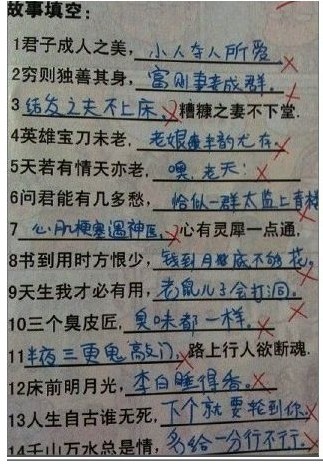 故事填空：
1君子成人之美，小人夺人所爱
2穷则独善其身，富则妻妾成群。
3结发之夫不上床，糟糠之妻不下堂.
4英雄宝刀未老，老娘丰韵尤存。
5天若有情天亦老，噢，老天：
6问君能有几多愁，恰似一群太监上青楼
7心肌梗塞遇神医，心有灵犀一点通，
8书到用时方恨少，钱到月底不够花。
9天生我才必有用，老鼠儿子会打洞。
10三个臭皮匠，臭味都一样。
11半夜三更鬼敲门，路上行人欲断魂.
12床前明月光，李白睡得香。
13人生自古谁无死，下个就要轮到你.
14千山万水总是情，多给一分行不行.